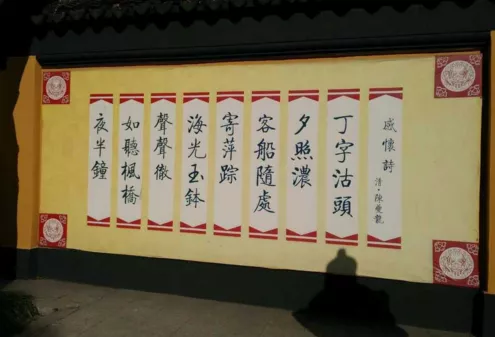 感懷詩
清·陳曼龍
丁字沽頭
夕照濃
客船隨處
寄萍踪
海光玉鉢
聲聲徹
如聽楓橋
夜半鐘